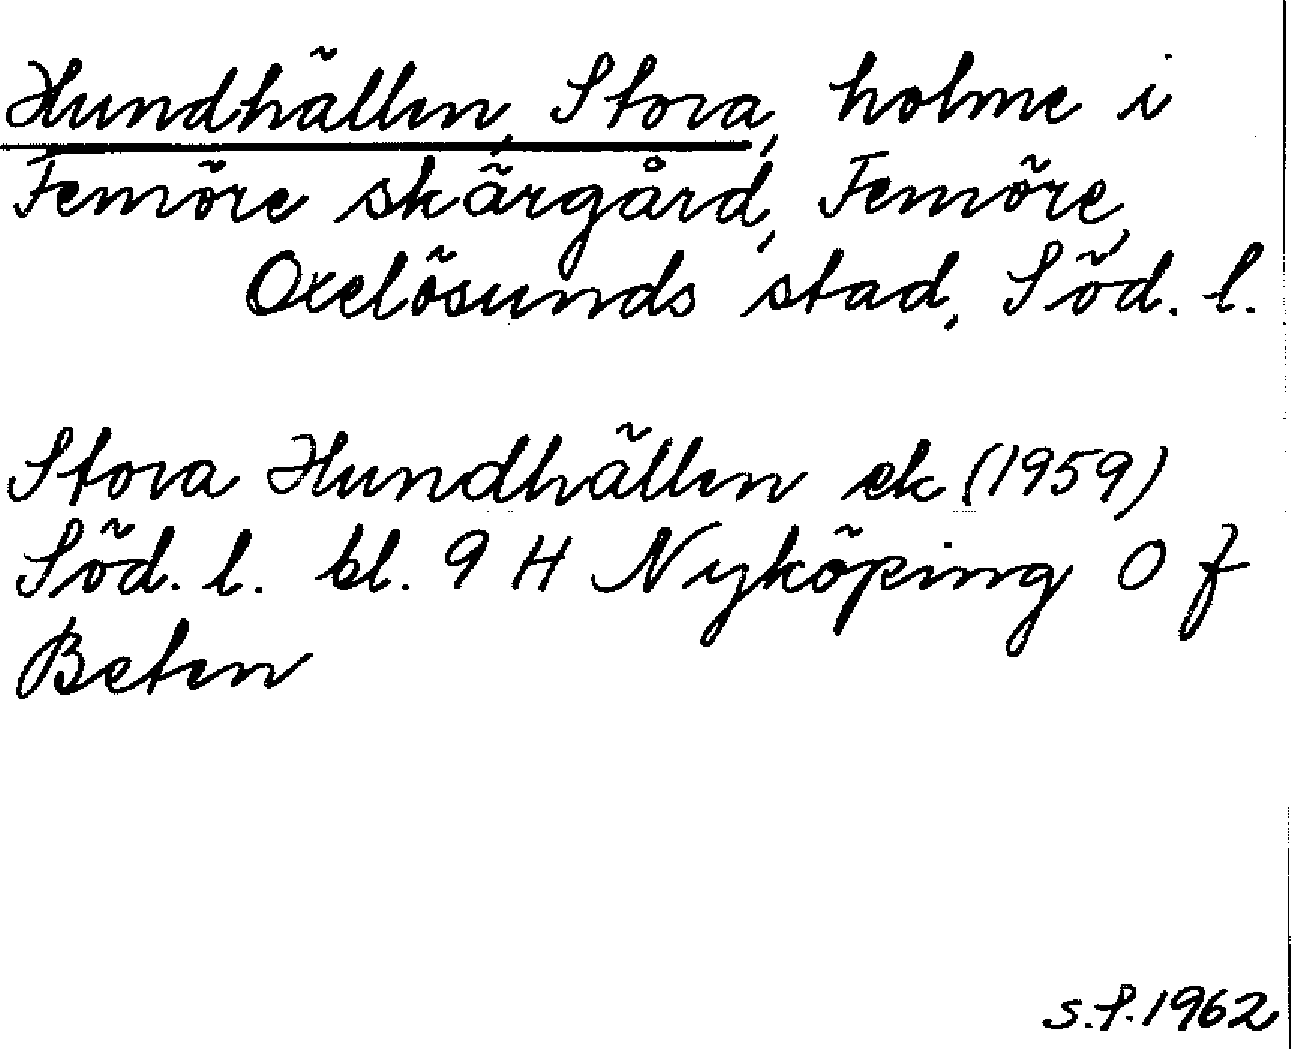 Hundhällen, Stora, holme i
Femöre skärgård, Femöre,
Oxelösunds stad, Söd. l.
Stora Hundhällen ek (1959)
Söd. l. bl. 9 H Nyköping O f
Beten
S.f. 1962